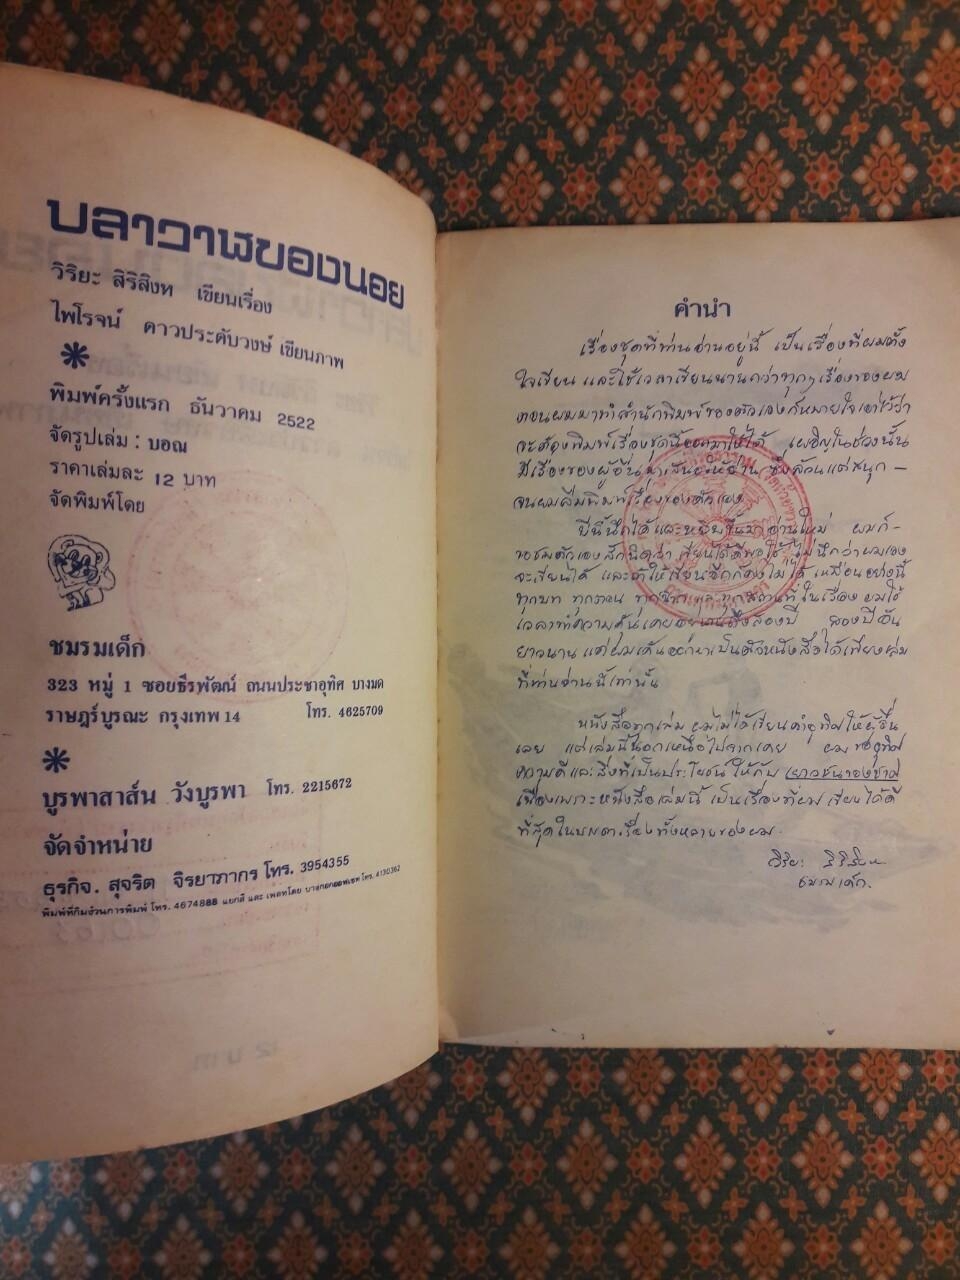 ปลาวาฬของนอย
วิริยะ สิริสิงห เขียนเรื่อง
ไพโรจน์ ดาวประดับวงษ์ เขียนภาพ
*
พิมพ์ครั้งแรก ธันวาคม 2522
จัดรูปเล่ม : บอณ
ราคาเล่มละ 12 บาท
จัดพิมพ์โดย
ชมรมเด็ก
323 หมู่ 1 ซอยธีรพัฒน์ ถนนประชาอุทิศ บางมด
ราษฎร์บูรณะ กรุงเทพ 14 โทร. 4625709
*
บูรพาสาส์น วังบูรพา โทร. 2215672
จัดจำหน่าย
ธุรกิจ. สุจริต จิรยาภากร โทร. 3954355
พิมพ์ที่กิมง้วนการพิมพ์ โทร. 4674888 แยกสี และ เพลทโดย บางกอกออฟเซท โทร. 4130362
คำนำ
เรื่องชุดที่ท่านอ่านอยู่นี้ เป็นเรื่องที่ผมตั้ง
ใจเขียน และใช้เวลาเขียนนานกว่าทุกๆ เรื่องของผม
ตอนผมมาทำสำนักพิมพ์ของตัวเองก็หมายใจเอาไว้ว่า
จะต้องพิมพ์เรื่องชุดนี้ออกมาให้ได้ เผอิญในช่วงนั้น
มีเรื่องของผู้อื่นมาเสนอให้อ่าน ซึ่งล้วนแต่สนุก -
จนผมลืมพิมพ์เรื่องของตัวเอง
ปีนี้นึกได้และหยิบขึ้นมาอ่านใหม่ ผมก็ -
ขอชมตัวเองสักนิดว่า เขียนได้ดีพอใช้ ไม่นึกว่าผมเอง
จะเขียนได้ และถ้าให้เขียนอีกก็คงไม่ได้เหมือนอย่างนี้
ทุกบท ทุกตอน และทุกสถานที่ ในเรื่อง ผมใช้
เวลาทำความคุ้นเคยอยู่นานถึงสองปี สองปีอัน
ยาวนาน แต่ผมเค้นออกมาเป็นตัวหนังสือได้เพียงเล่ม
ที่ท่านอ่านนี้เท่านั้น
หนังสือทุกเล่ม ผมไม่ได้เขียนคำอุทิศให้ผู้อื่น
เลย แต่เล่มนี้นอกเหนือไปจากเคย ผมขออุทิศ
ความดีและสิ่งที่เป็นประโยชน์ ให้กับ เยาวชนของชาติ
เพื่องเพราะหนังสือเล่มนี้ เป็นเรื่องที่ผมเขียนได้ดี
ที่สุดในบรรดาเรื่องทั้งหลายของผม
วิริยะ สิริสิงห
ชมรมเด็ก.